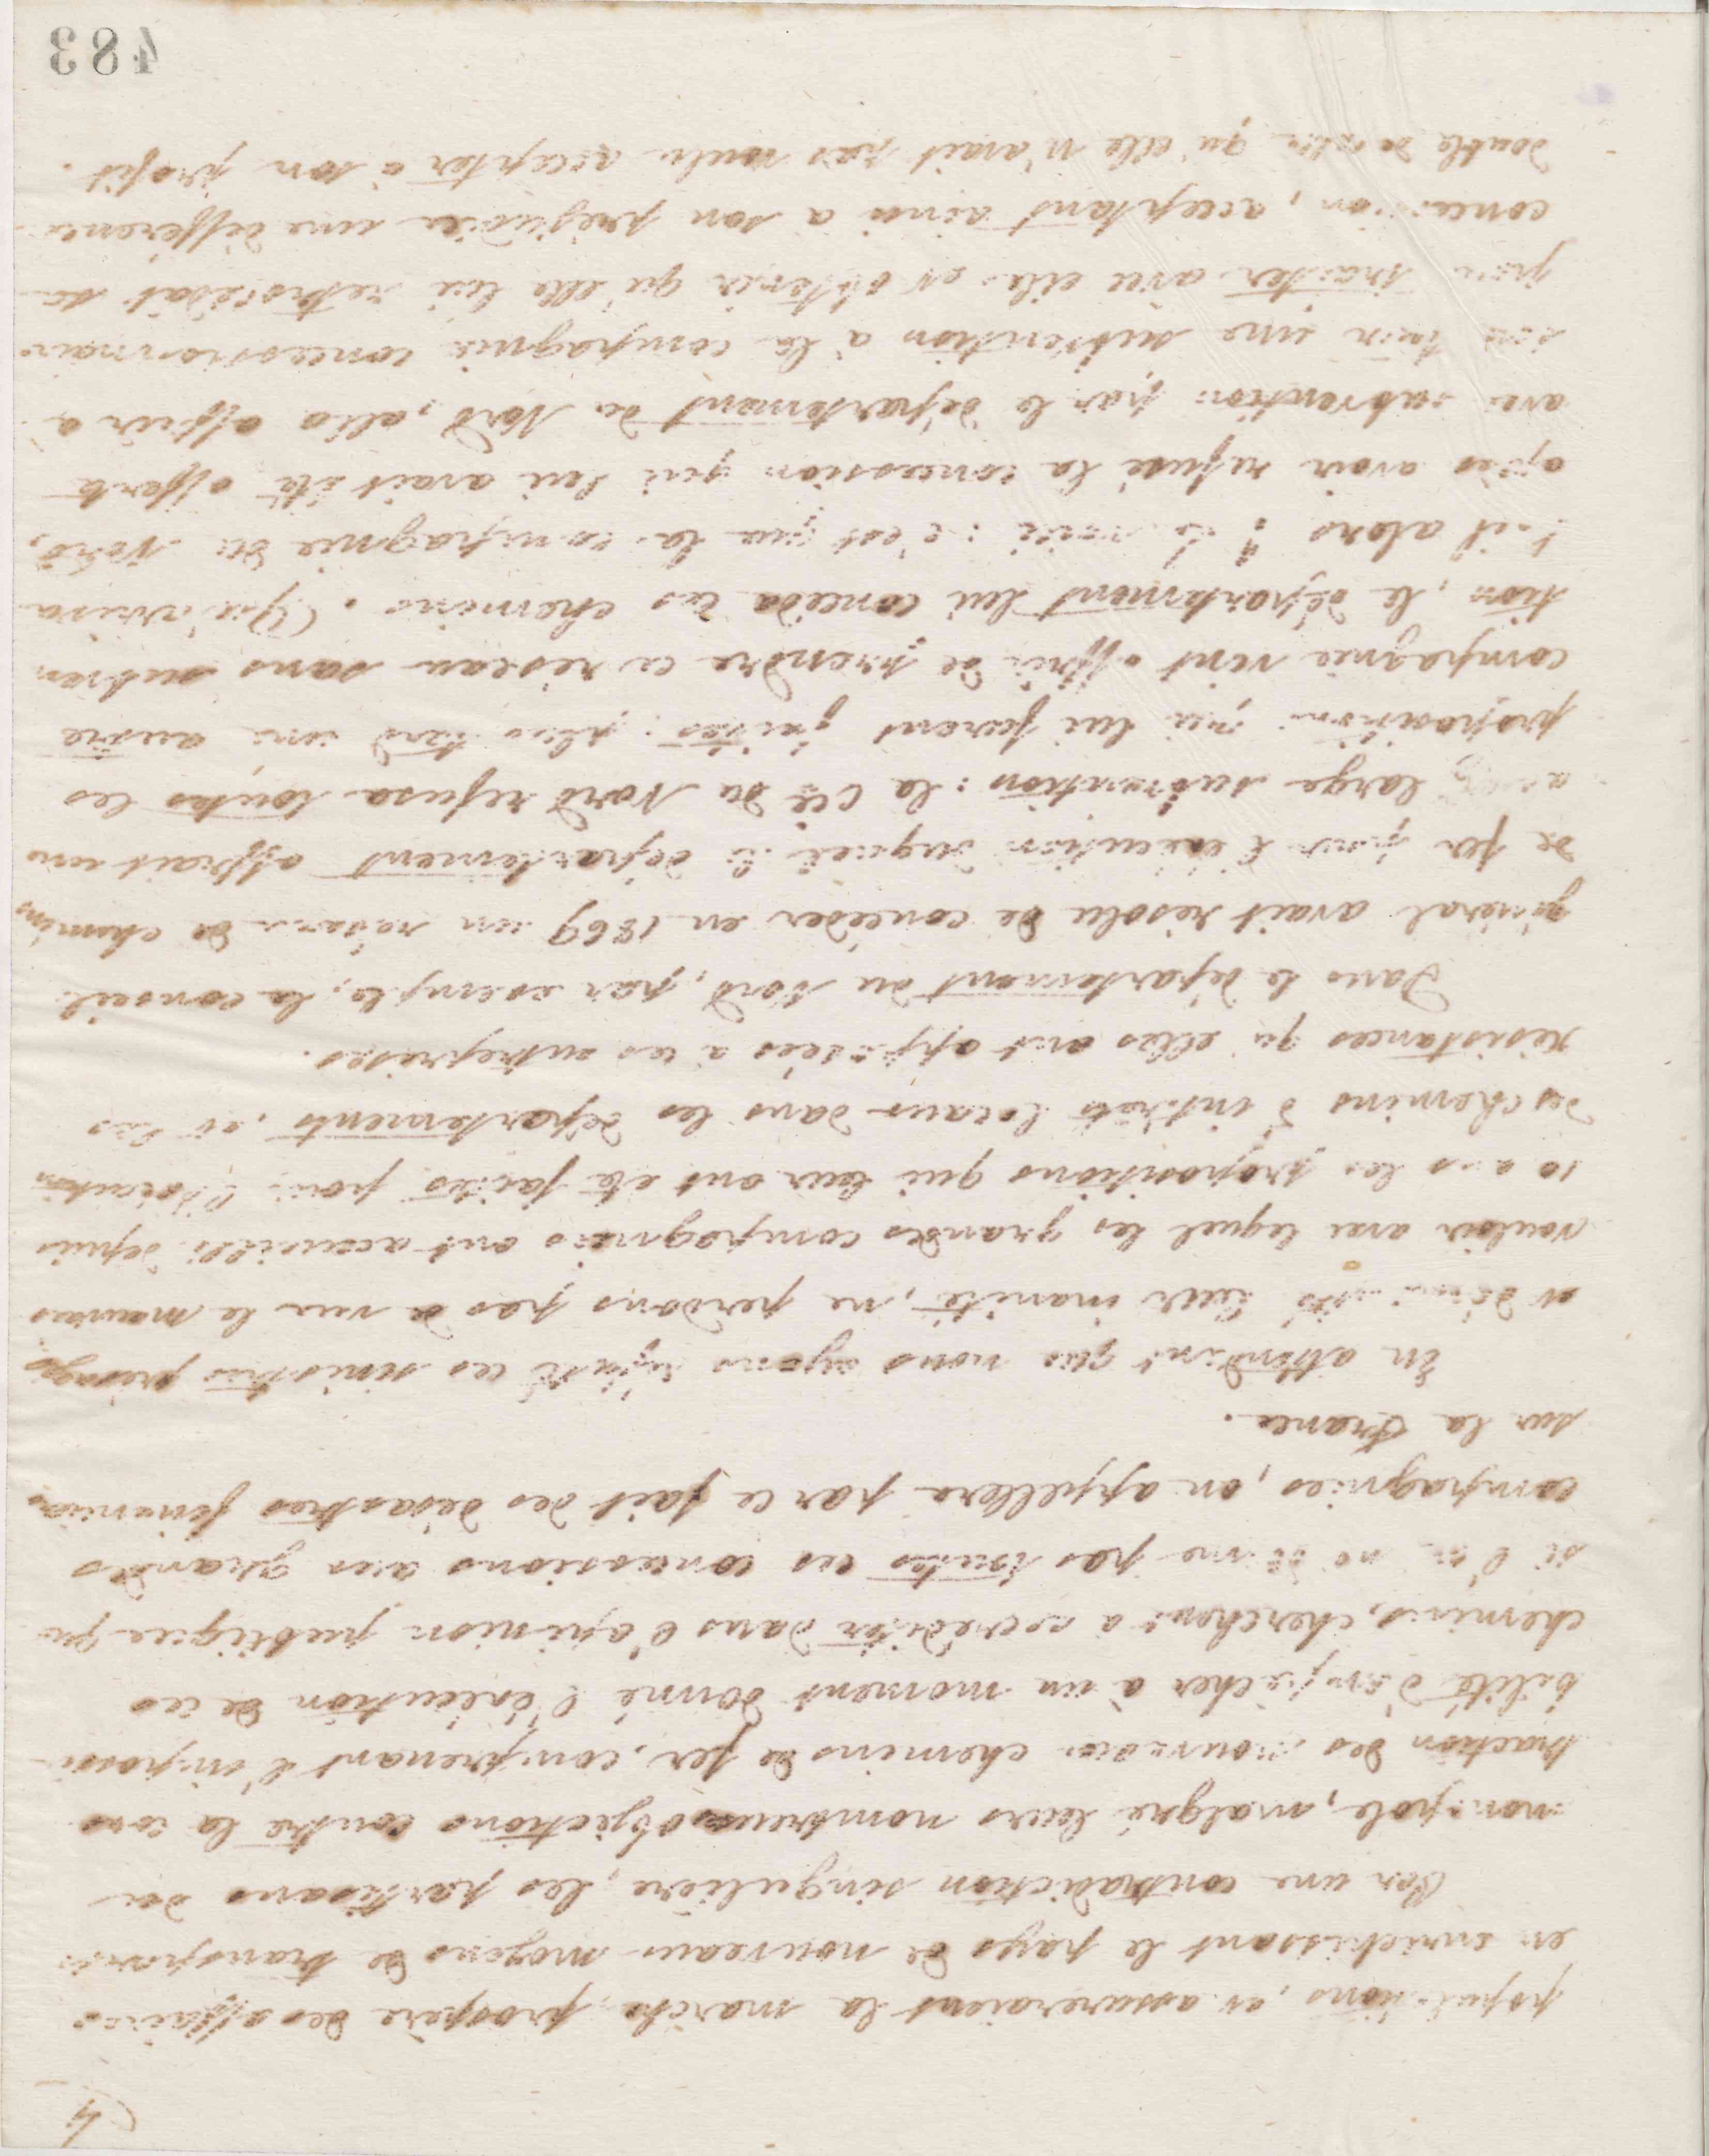 4
populations, et assureraient la marche prospère des affaires
en enrichissant le pays de nouveaux moyens de transport.
Par une contradiction singulière, les partisans du
monopole, malgré leurs nombreuses objections contre la cons
truction des nouveaux chemins de fer, comprenant l'impossi-
bilité d'empêcher à un moment donné l'exécution de ces
chemins, cherchent à accréditer dans l'opinion publique que
si l'on ne donne pas toutes ces concessions aux grandes
compagnies, on appellera par ce fait des désastres financiers
sur la France.
En attendant que nous ayons réfuté ces sinistres présages
et démontré leur inanité, ne perdons pas de vue le mauvais
vouloir avec lequel les grandes compagnies ont accueilli depuis
10 ans les propositions qui leur ont été faites pour l'exécution
des chemins d'intérêts locaux dans les départements, et les
résistances qu'elles ont opposées à ces entreprises.
Dans le département du Nord, par exemple, le conseil
général avait résolu de concéder en 1869 un réseau de chemins
de fer pour l'exécution duquel le département offrait une
assez large subvention : la Cie du Nord refusa toutes les
propositions qui lui furent faites ; plus tard une autre
compagnie vint offrir de prendre ce réseau sans subven
tion, le département lui concéda ces chemins. Qu'arriva
t-il alors ? Le voici : c'est que la compagnie du Nord,
après avoir refusé la concession qui lui avait été offerte
avec subvention par le département du Nord, alla offrir à
son tour une subvention à la compagnie concessionnaire
pour traiter avec elle et obtenir qu'elle lui rétrocédat sa
concession, acceptant ainsi à son préjudice une différence
double de celle qu'elle n'avait pas voulu accepter à son profit.
483